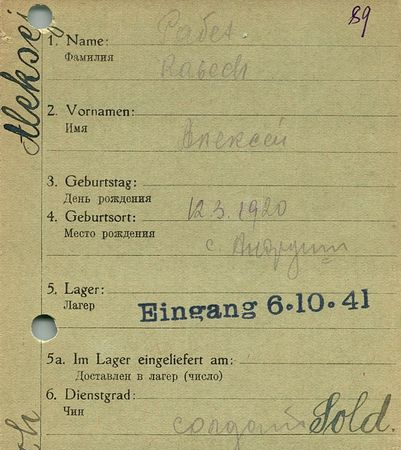 89
Aleksej
1. Name:
Фамилия
Рабет
2. Vornamen:
Имя
Алексей
3. Geburtstag:
День рождения
4. Geburtsort: 12.3.1920
Место рождения
с.
5. Lager:
Лагер
Eingang 6.10.41
5a. Im Lager eingeliefert am:
Доставлен в лагер (число)
6. Dienstgrad:
Чин
солдат Sold.